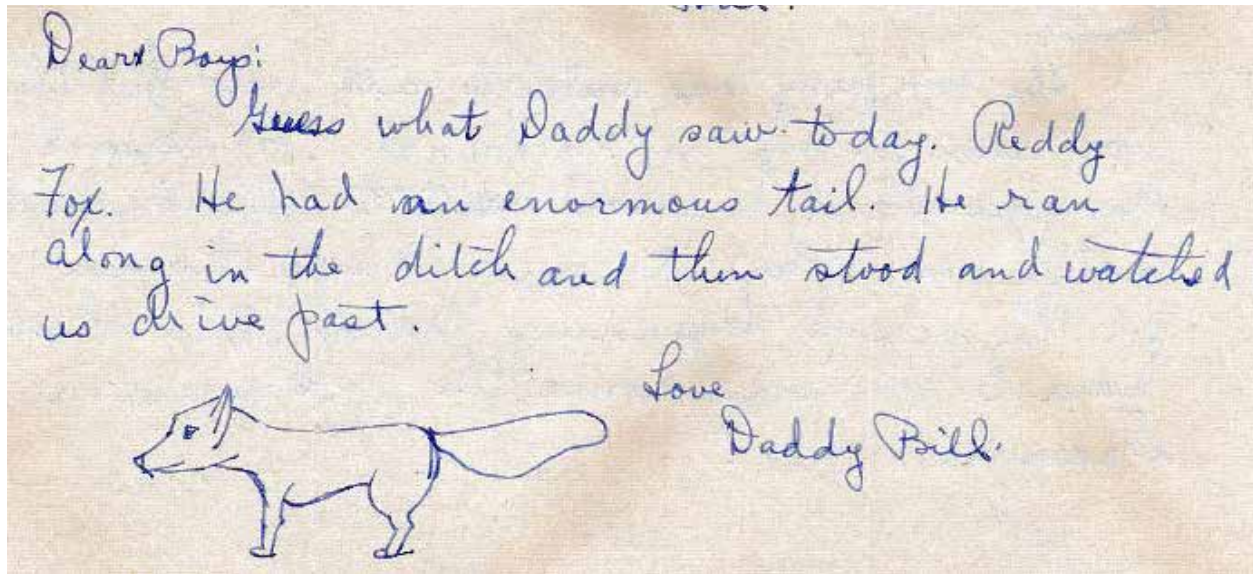 Dear Boys:
Guess what Daddy saw today. Reddy
Fox. He had an enormous tail. He ran
along in the ditch and then stood and watched
us drive past.
Love
Daddy Bill.